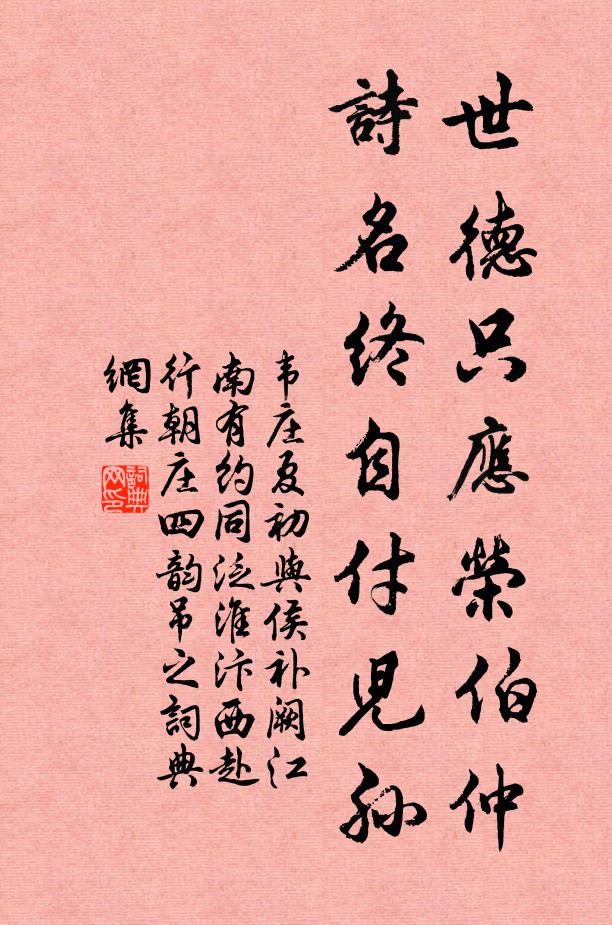 世德只應榮伯仲
詩名終自付兒孫
韦庄夏初與侯补阙江
南有约同泛淮汴西赴
行朝庄四韵吊之詞典
網集
詞典